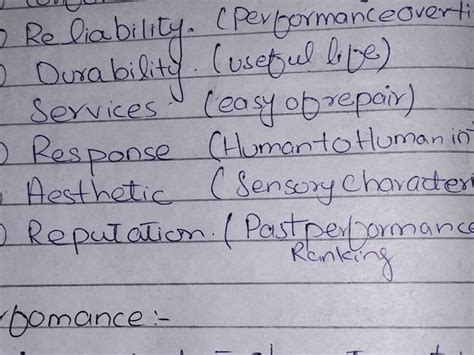 Reliability. (Performance overti
Durability. (useful life)
Services (easy of repair)
Response (Human to Human in
Aesthetic (Sensory Character
Reputation. (Past performance
Ranking
fomance:-